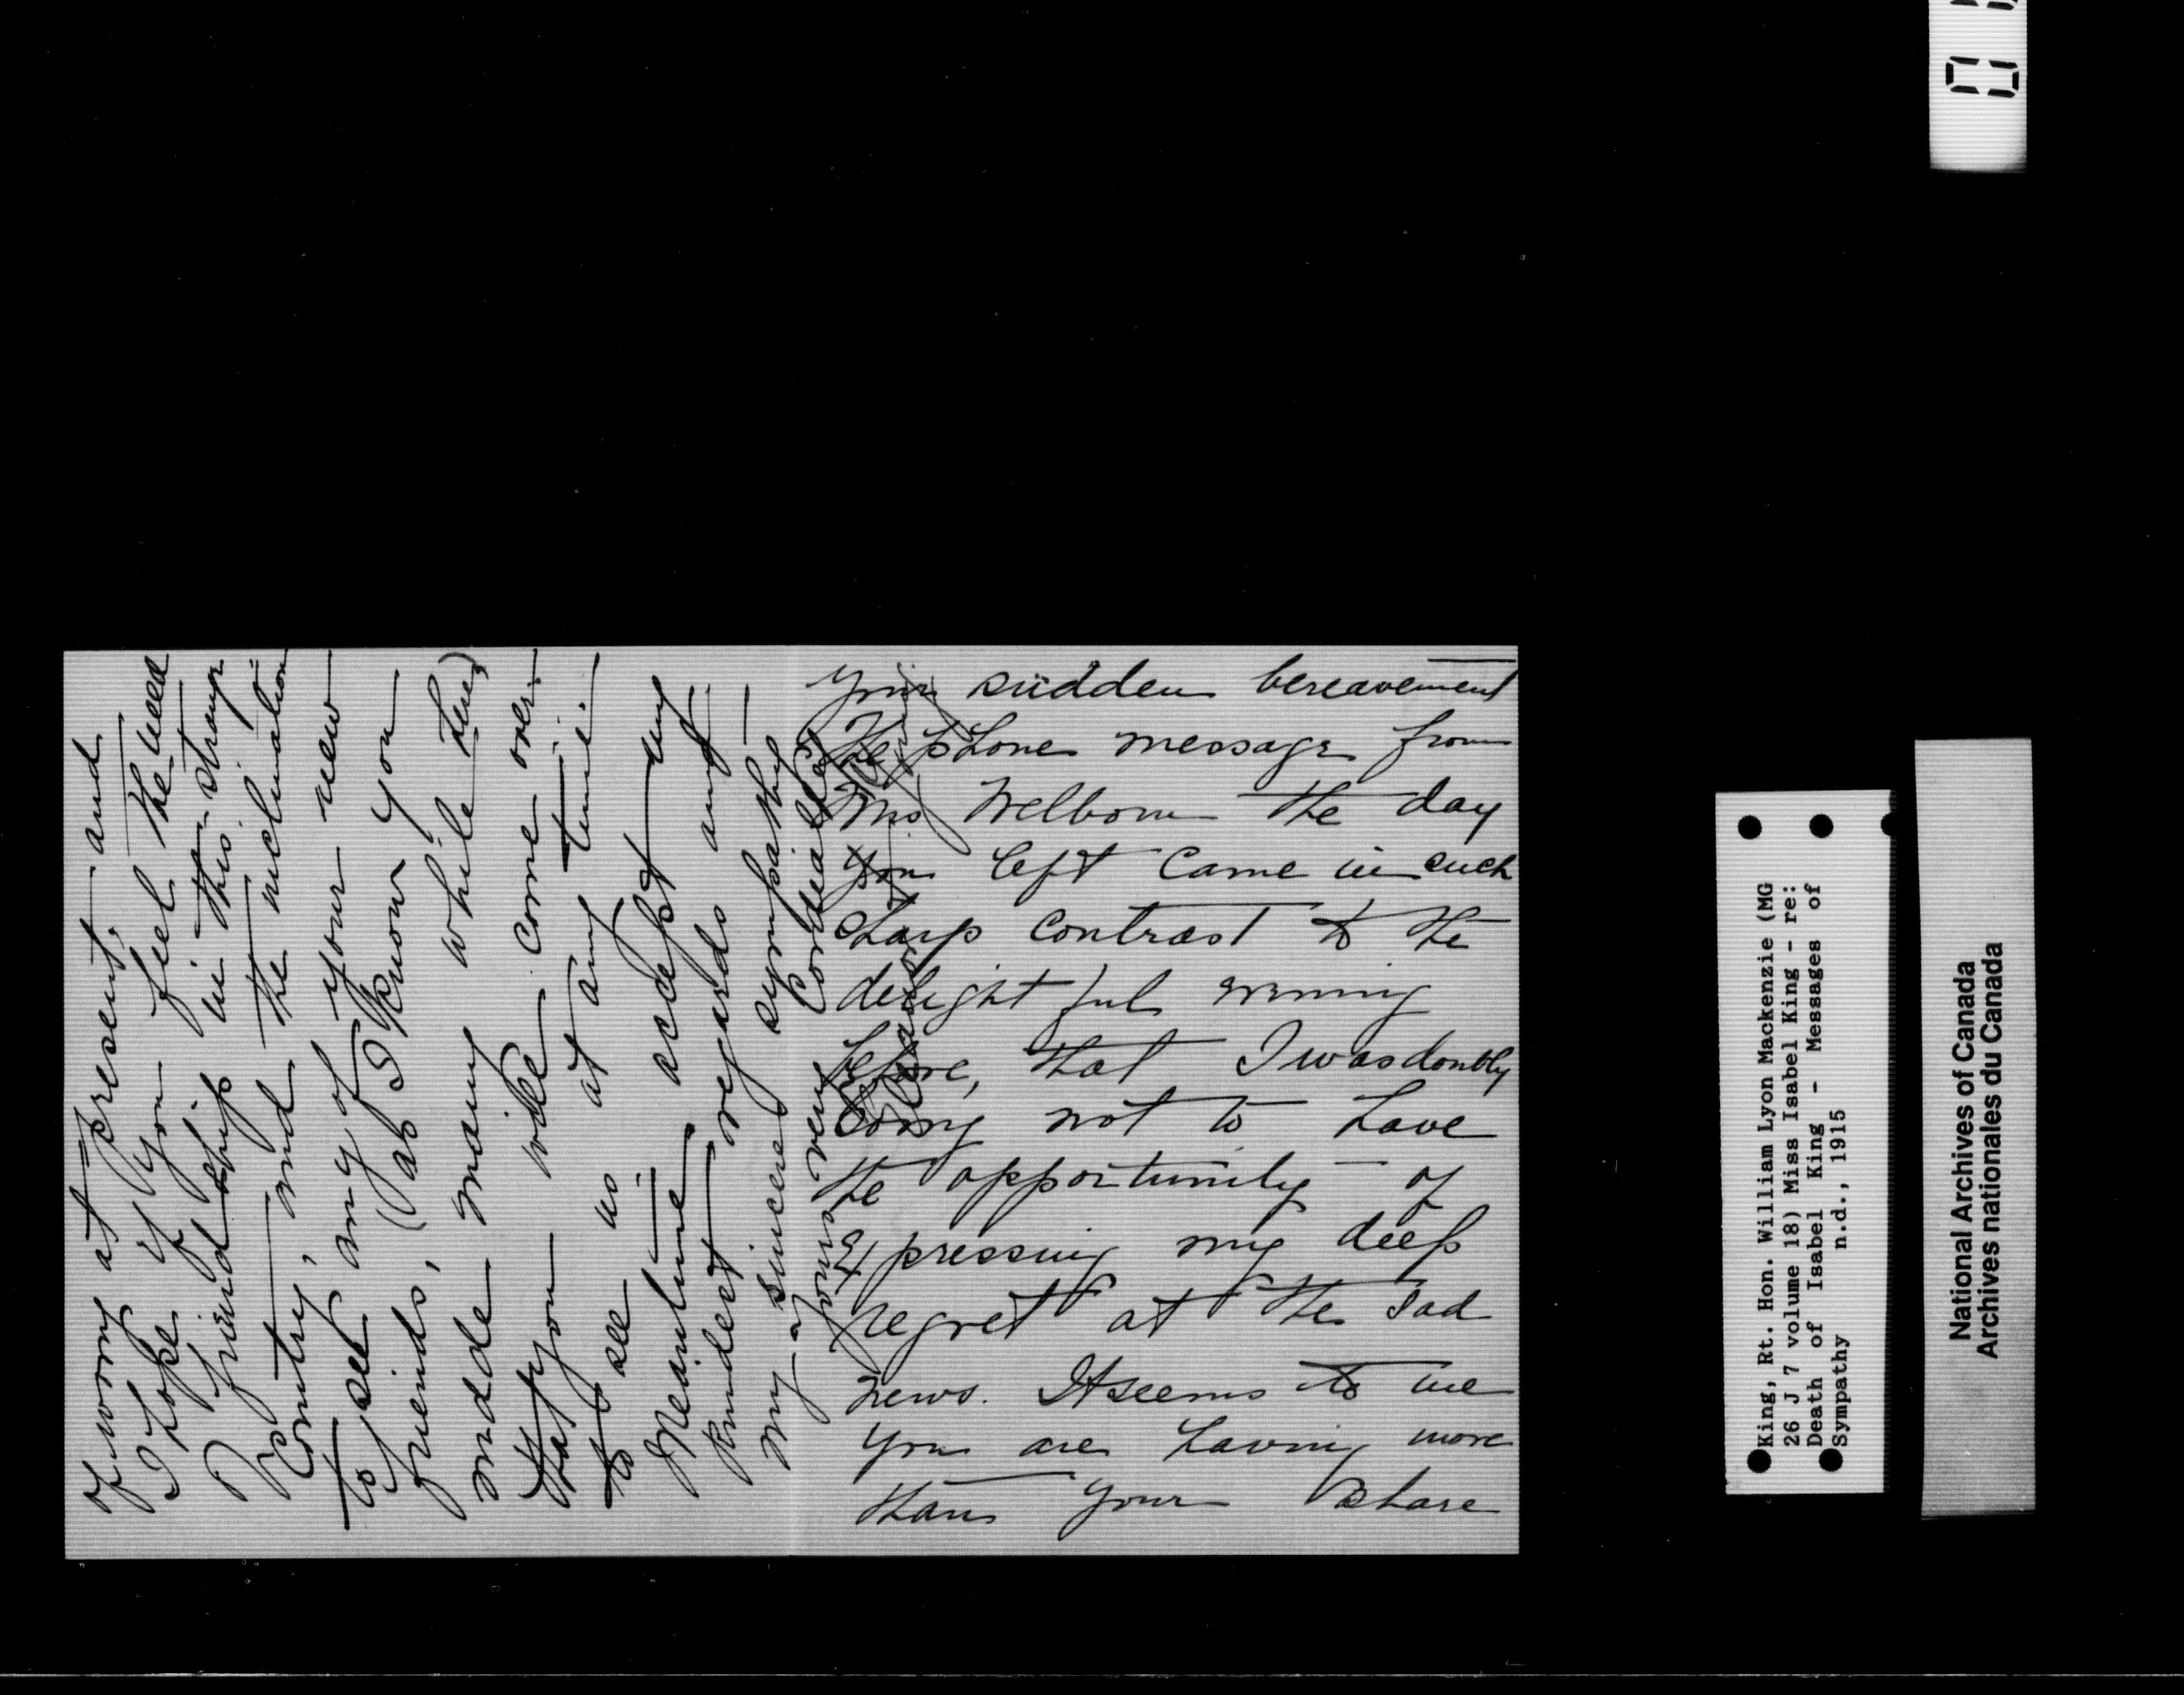 your sudden bereavement
The phone message from
Mrs Welborn the day
you left came in such
sharp contrast to the
delightful evening
before, that I was doubly
sorry not to have
the opportunity of
expressing my deep
regret at the sad
news. It seems to me
you are having more
than your share
of worry at present, and
I hope if you feel the need
of friendship in this strange
Country, and the inclination
to see any of your new
friends, (as I know you
made many while here)
that you will come over
to see us at any time.
Meantime accept my
kindest regards and
my sincere sympathy
yours very Cordially
King, Rt. Hon. William Lyon Mackenzie (MG
26 J 7 volume 18) Miss Isabel King - re:
Death of Isabel King - Messages of
Sympathy n.d., 1915
National Archives of Canada
Archives nationales du Canada